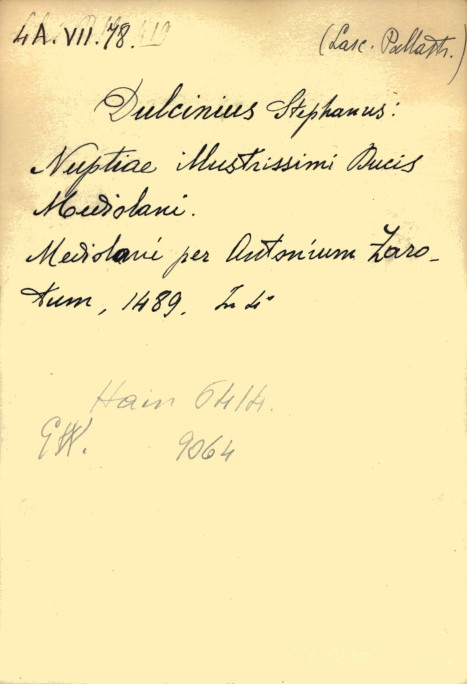 4A.VII.78.
(Lasc. Pallastr.)
Dulcinius Stephanus:
Nuptiae illustrissimi Ducis
Mediolani.
Mediolani per Antonium Zaro-
tum, 1489. In 4°
Hain 6414.
GW. 9064